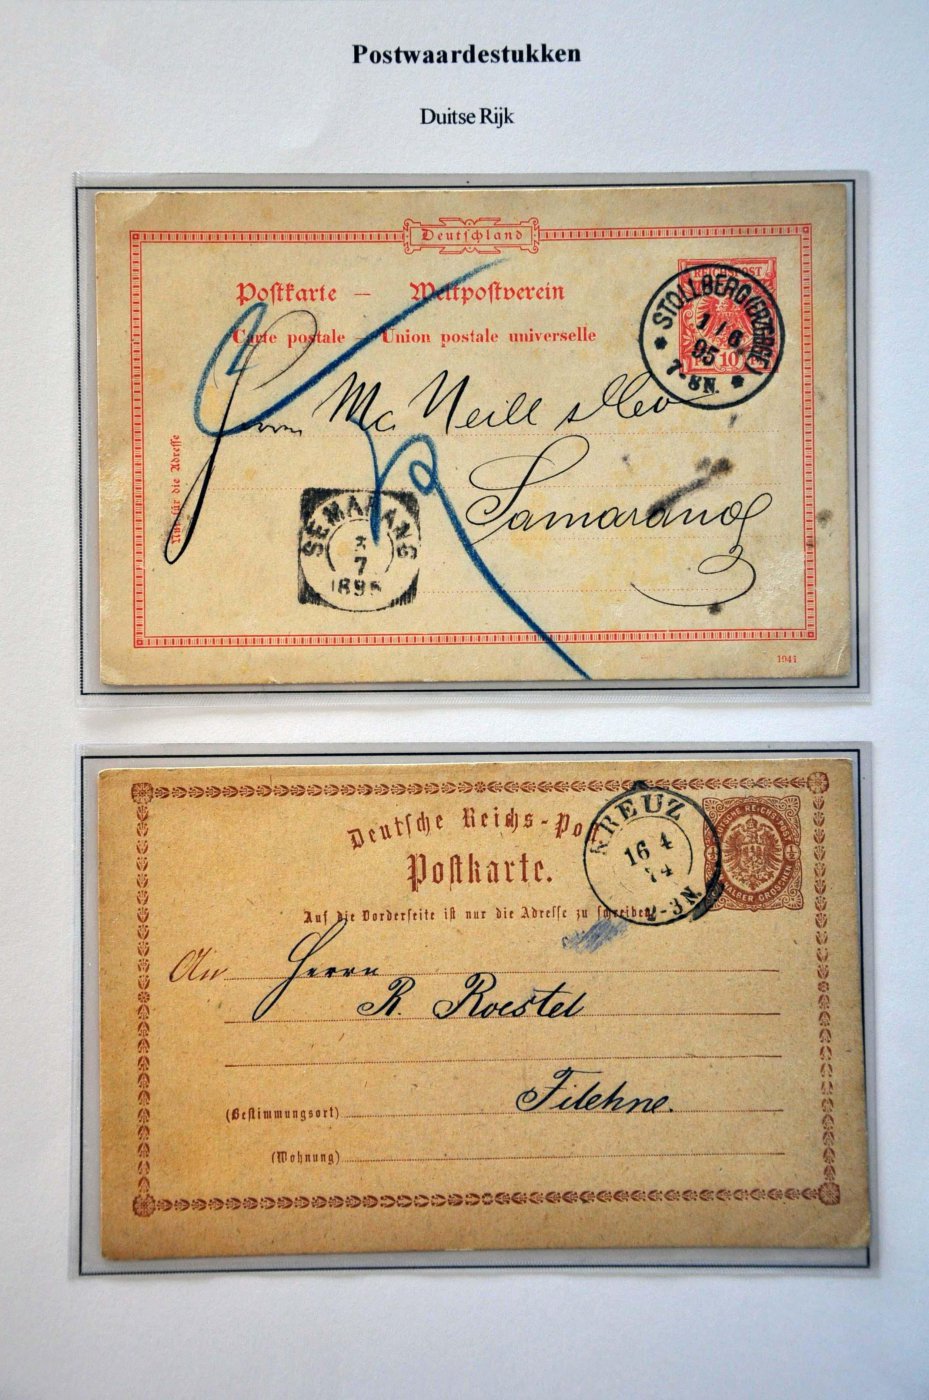 Postwaardestukken
Duitse Rijk
Deutschland
Postkarte — Weltpostverein
Carte postale — Union postale universelle
REICHSPOST
10
STOLLBERG (ERZGEBGE)
1/6
95
7-8N.
Herrn Mc Neill & Co
Samarang
Nur für die Adresse
SEMARANG
3
7
1895
1941
Deutsche Reichs-Po
Postkarte.
Auf die Vorderseite ist nur die Adresse zu schreiben
KREUZ
16 4
74
2-3N.
DEUTSCHE REICHS-POST
EIN HALBER GROSCHEN
An Herrn
R. Roestel
Filehne.
(Bestimmungsort)
(Wohnung)